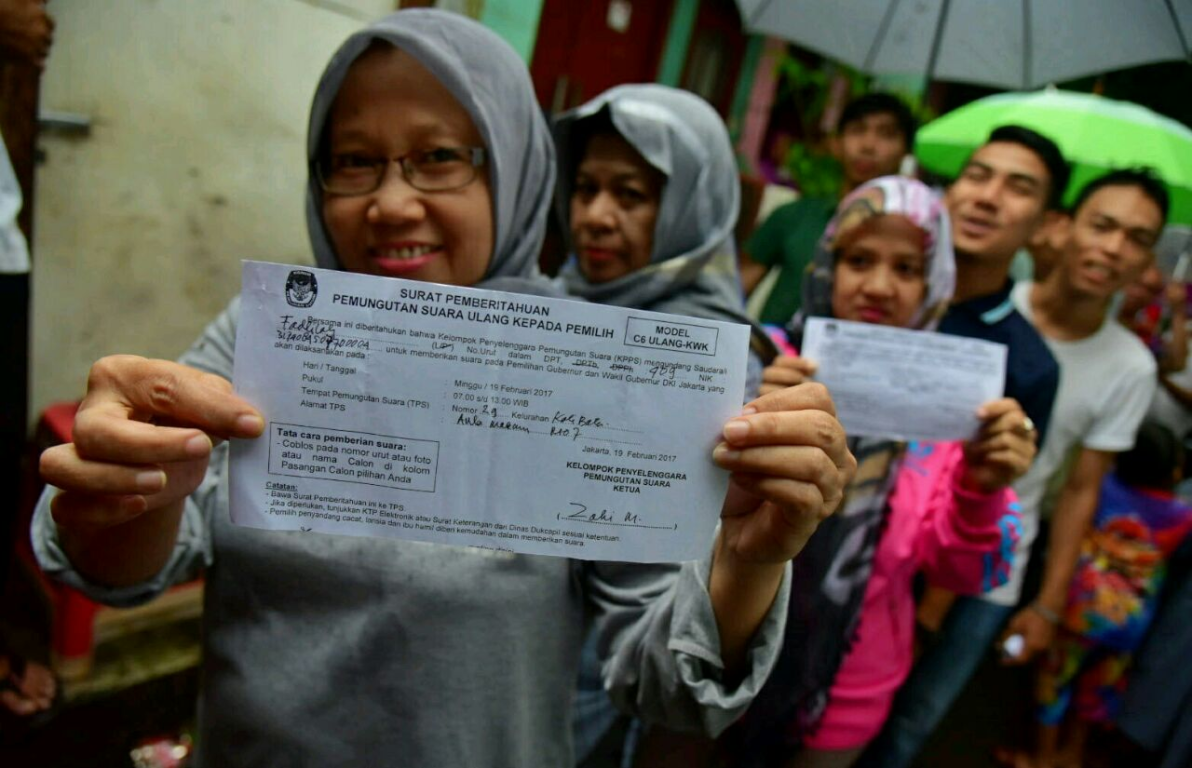 SURAT PEMBERITAHUAN
PEMUNGUTAN SUARA ULANG KEPADA PEMILIH
MODEL
C6 ULANG-KWK
Bersama ini diberitahukan bahwa Kelompok Penyelenggara Pemungutan Suara (KPPS) mengundang Saudara/i
(L/P) No.Urut dalam DPT, DPTb, DPPh 409 NIK
untuk memberikan suara pada Pemilihan Gubernur dan Wakil Gubernur DKI Jakarta yang
akan dilaksanakan pada
Hari / Tanggal : Minggu / 19 Februari 2017
Pukul : 07.00 s/d 13.00 WIB
Tempat Pemungutan Suara (TPS) : Nomor 29 Kelurahan Kali Bata
Alamat TPS
Jakarta, 19 Februari 2017
Tata cara pemberian suara:
- Coblos pada nomor urut atau foto
atau nama Calon di kolom
Pasangan Calon pilihan Anda
KELOMPOK PENYELENGGARA
PEMUNGUTAN SUARA
KETUA
( Zaki M. )
Catatan:
- Bawa Surat Pemberitahuan ini ke TPS.
- Jika diperlukan, tunjukkan KTP Elektronik atau Surat Keterangan dari Dinas Dukcapil sesuai ketentuan.
- Pemilih penyandang cacat, lansia dan ibu hamil diberi kemudahan dalam memberikan suara.